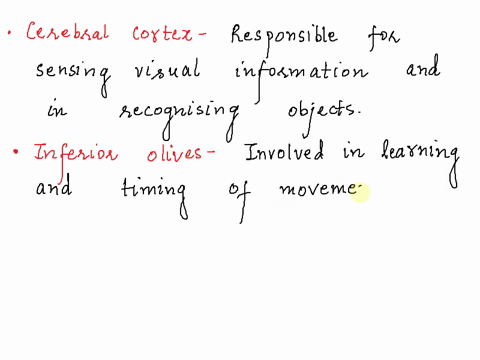 • Cerebral cortex - Responsible for
sensing visual information and
in recognising objects.
• Inferior olives - Involved in learning
and timing of moveme